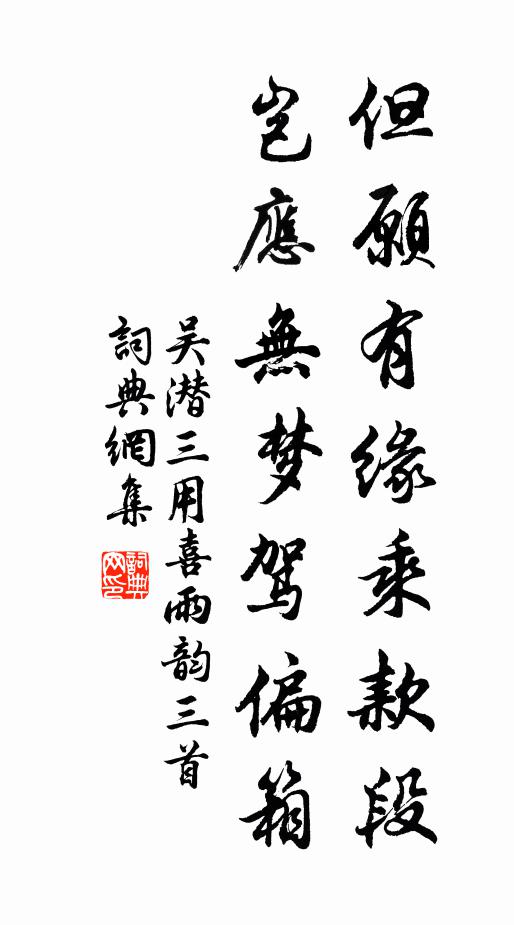 但願有緣乘款段
豈應無梦駕偏箱
吴潜三用喜雨韵三首
詞典網集
詞典网印